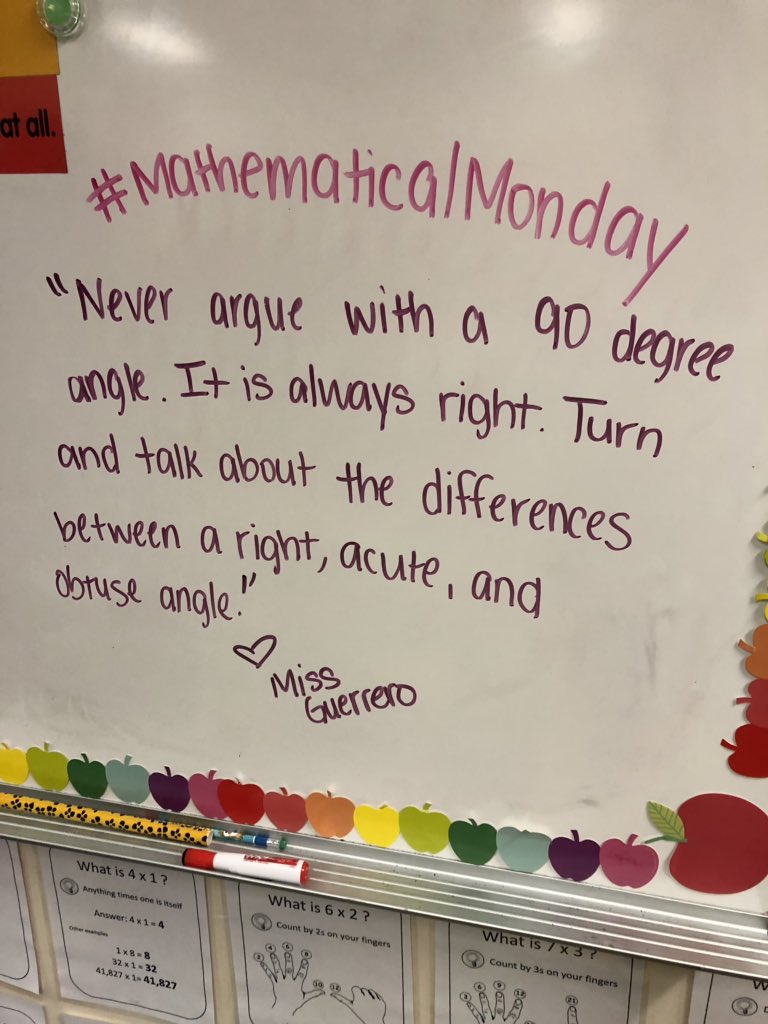 at all.
#MathematicalMonday
"Never argue with a 90 degree
angle. It is always right. Turn
and talk about the differences
between a right, acute, and
obtuse angle."
♡ Miss
Guerrero
What is 4 x 1 ?
Anything times one is itself
Answer: 4 x 1 = 4
Other examples
1 x 8 = 8
32 x 1 = 32
41,827 x 1 = 41,827
What is 6 x 2 ?
Count by 2s on your fingers
2 4 6 8 10 12
What is 7 x 3 ?
Count by 3s on your fingers
3 6 9 12 21